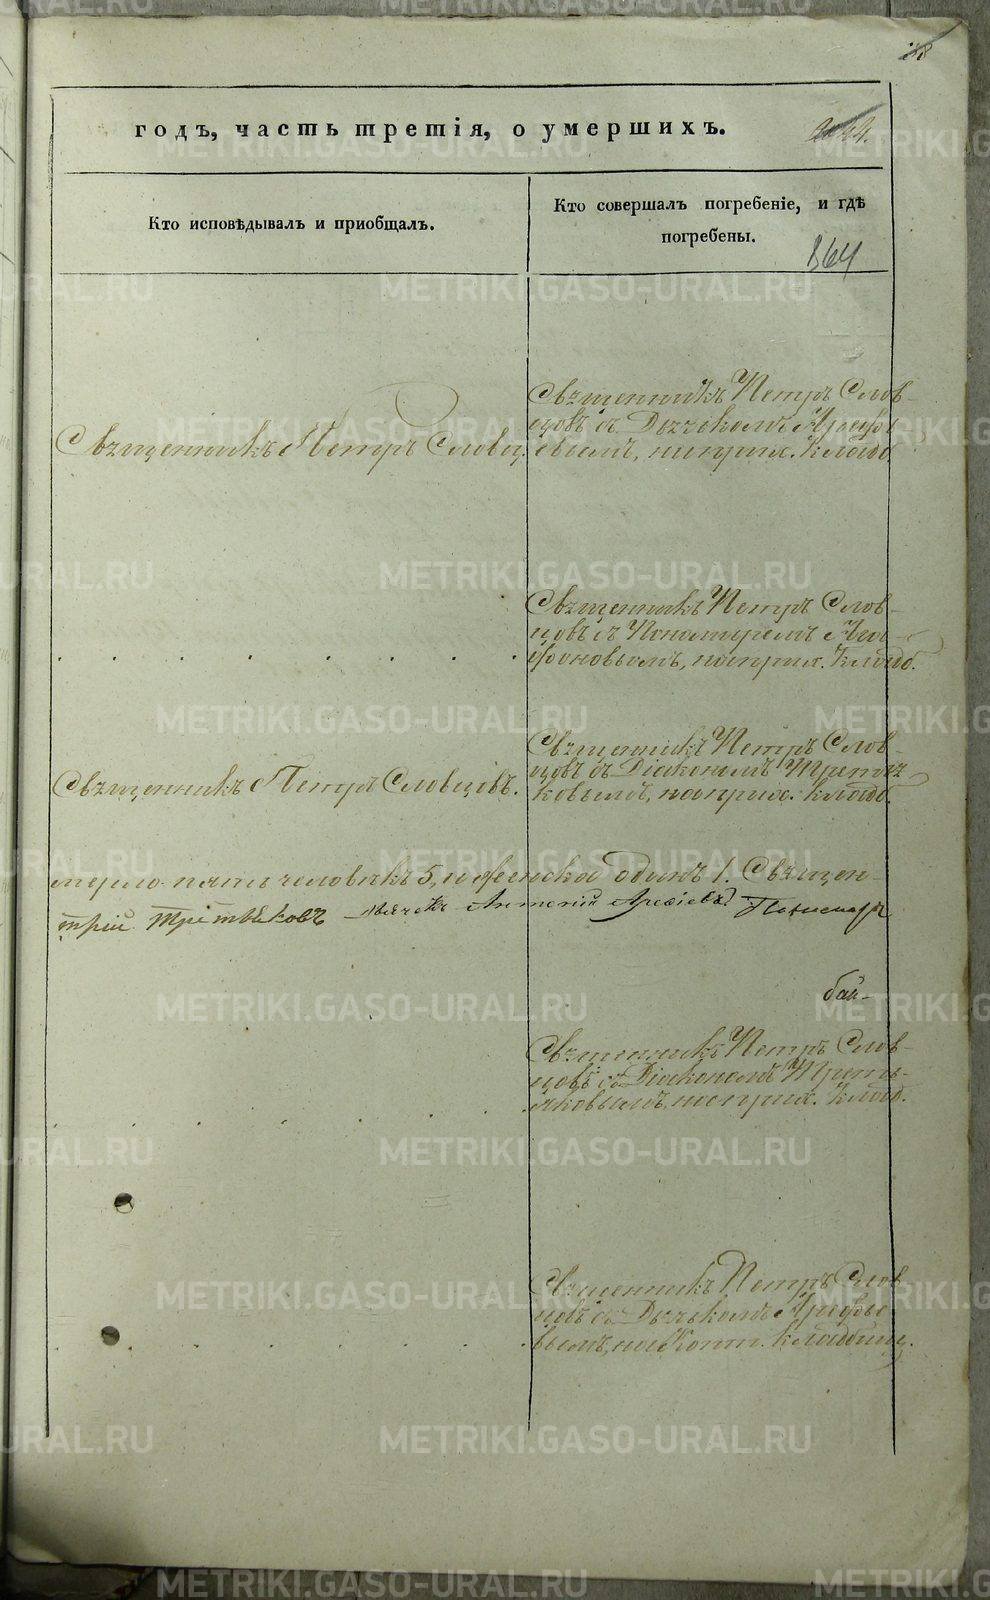 годъ, часть третія, о умершихъ.
Кто исповѣдывалъ и приобщалъ.
Кто совершалъ погребеніе, и гдѣ
погребены.
364
Священникъ Петръ Словц.
Священникъ Петръ Слов-
цовъ съ Дьячкомъ Арефі
евымъ, на прих. кладб.
Священникъ Петръ Слов-
цовъ съ Пономаремъ Ага-
фоновымъ, на прих. кладб.
Священникъ Петръ Словцовъ.
Священникъ Петръ Слов-
цовъ съ Діакономъ Третья
ковымъ, на прих. кладб.
мерло пять человѣкъ 5, и женска одинъ 1. Священ-
трій Третьяковъ Дьячекъ Антоній Арефіевъ Пономарь
бай-
Священникъ Петръ Слов-
цовъ съ Діакономъ Треть-
яковымъ, на прих. кладб.
Священникъ Петръ Слов-
цовъ съ Дьячкомъ Арефье
вымъ, на кладбищ.
METRIKI.GASO-URAL.RU